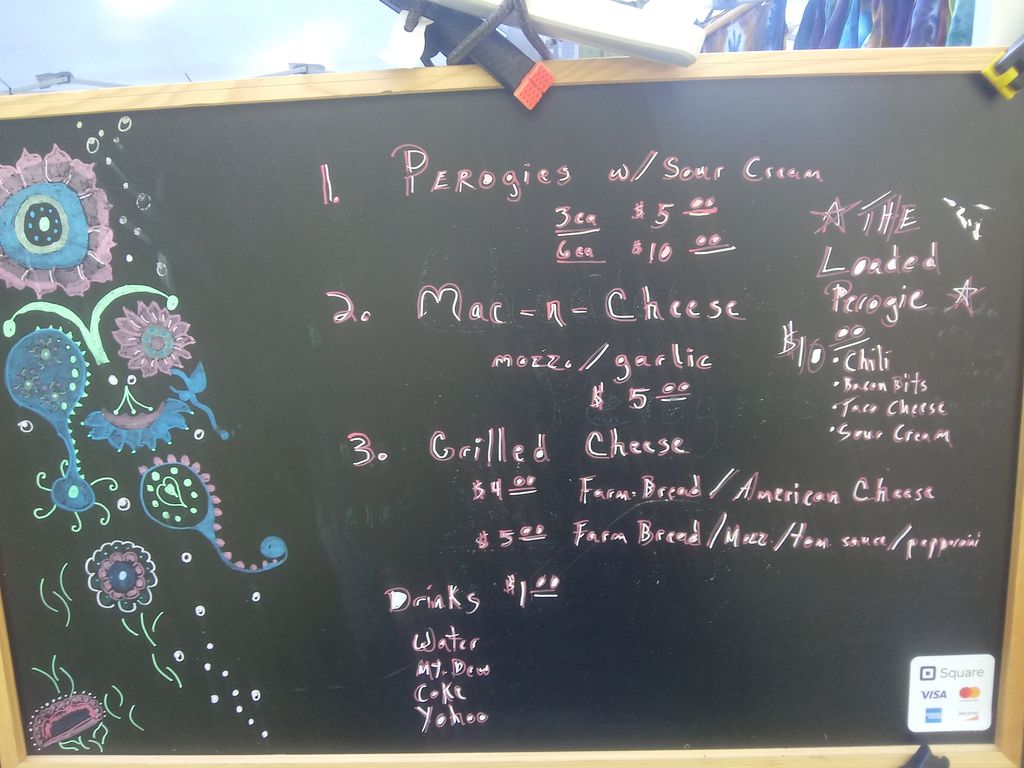 1. Perogies w/ Sour Cream
3ea $5 00
6ea $10 00
☆ THE
Loaded
Perogie ☆
$10 00
• Chili
• Bacon Bits
• Taco Cheese
• Sour Cream
2. Mac-n-Cheese
mozz./garlic
$5 00
3. Grilled Cheese
$4 00 Farm Bread/American Cheese
$5 00 Farm Bread/Mozz/tom sauce/pepperoini
Drinks $1 00
Water
Mt. Dew
Coke
Yohoo
Square
VISA